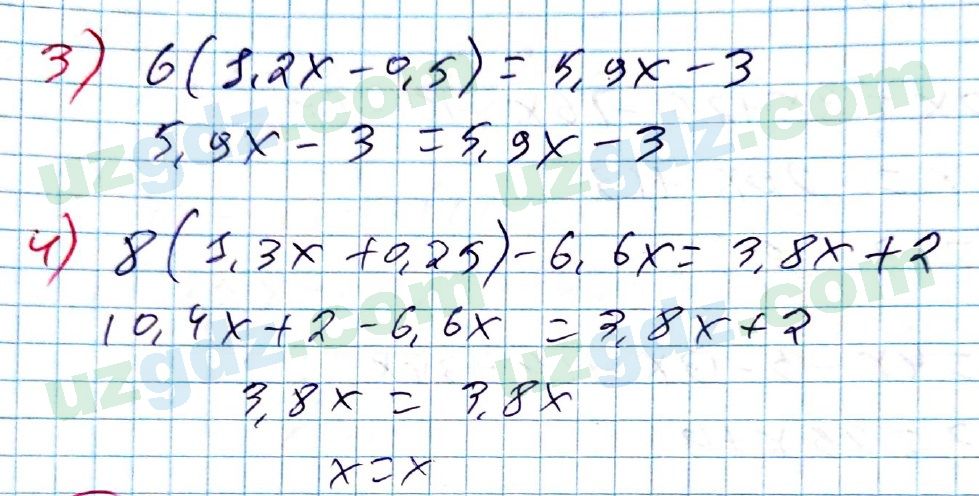 3) 6(1,2x - 0,5) = 5,9x - 3
5,9x - 3 = 5,9x - 3
4) 8(1,3x + 0,25) - 6,6x = 3,8x + 2
10,4x + 2 - 6,6x = 3,8x + 2
3,8x = 3,8x
x = x
uzgdz.com
uzgdz.com
uzgdz.com
uzgdz.com